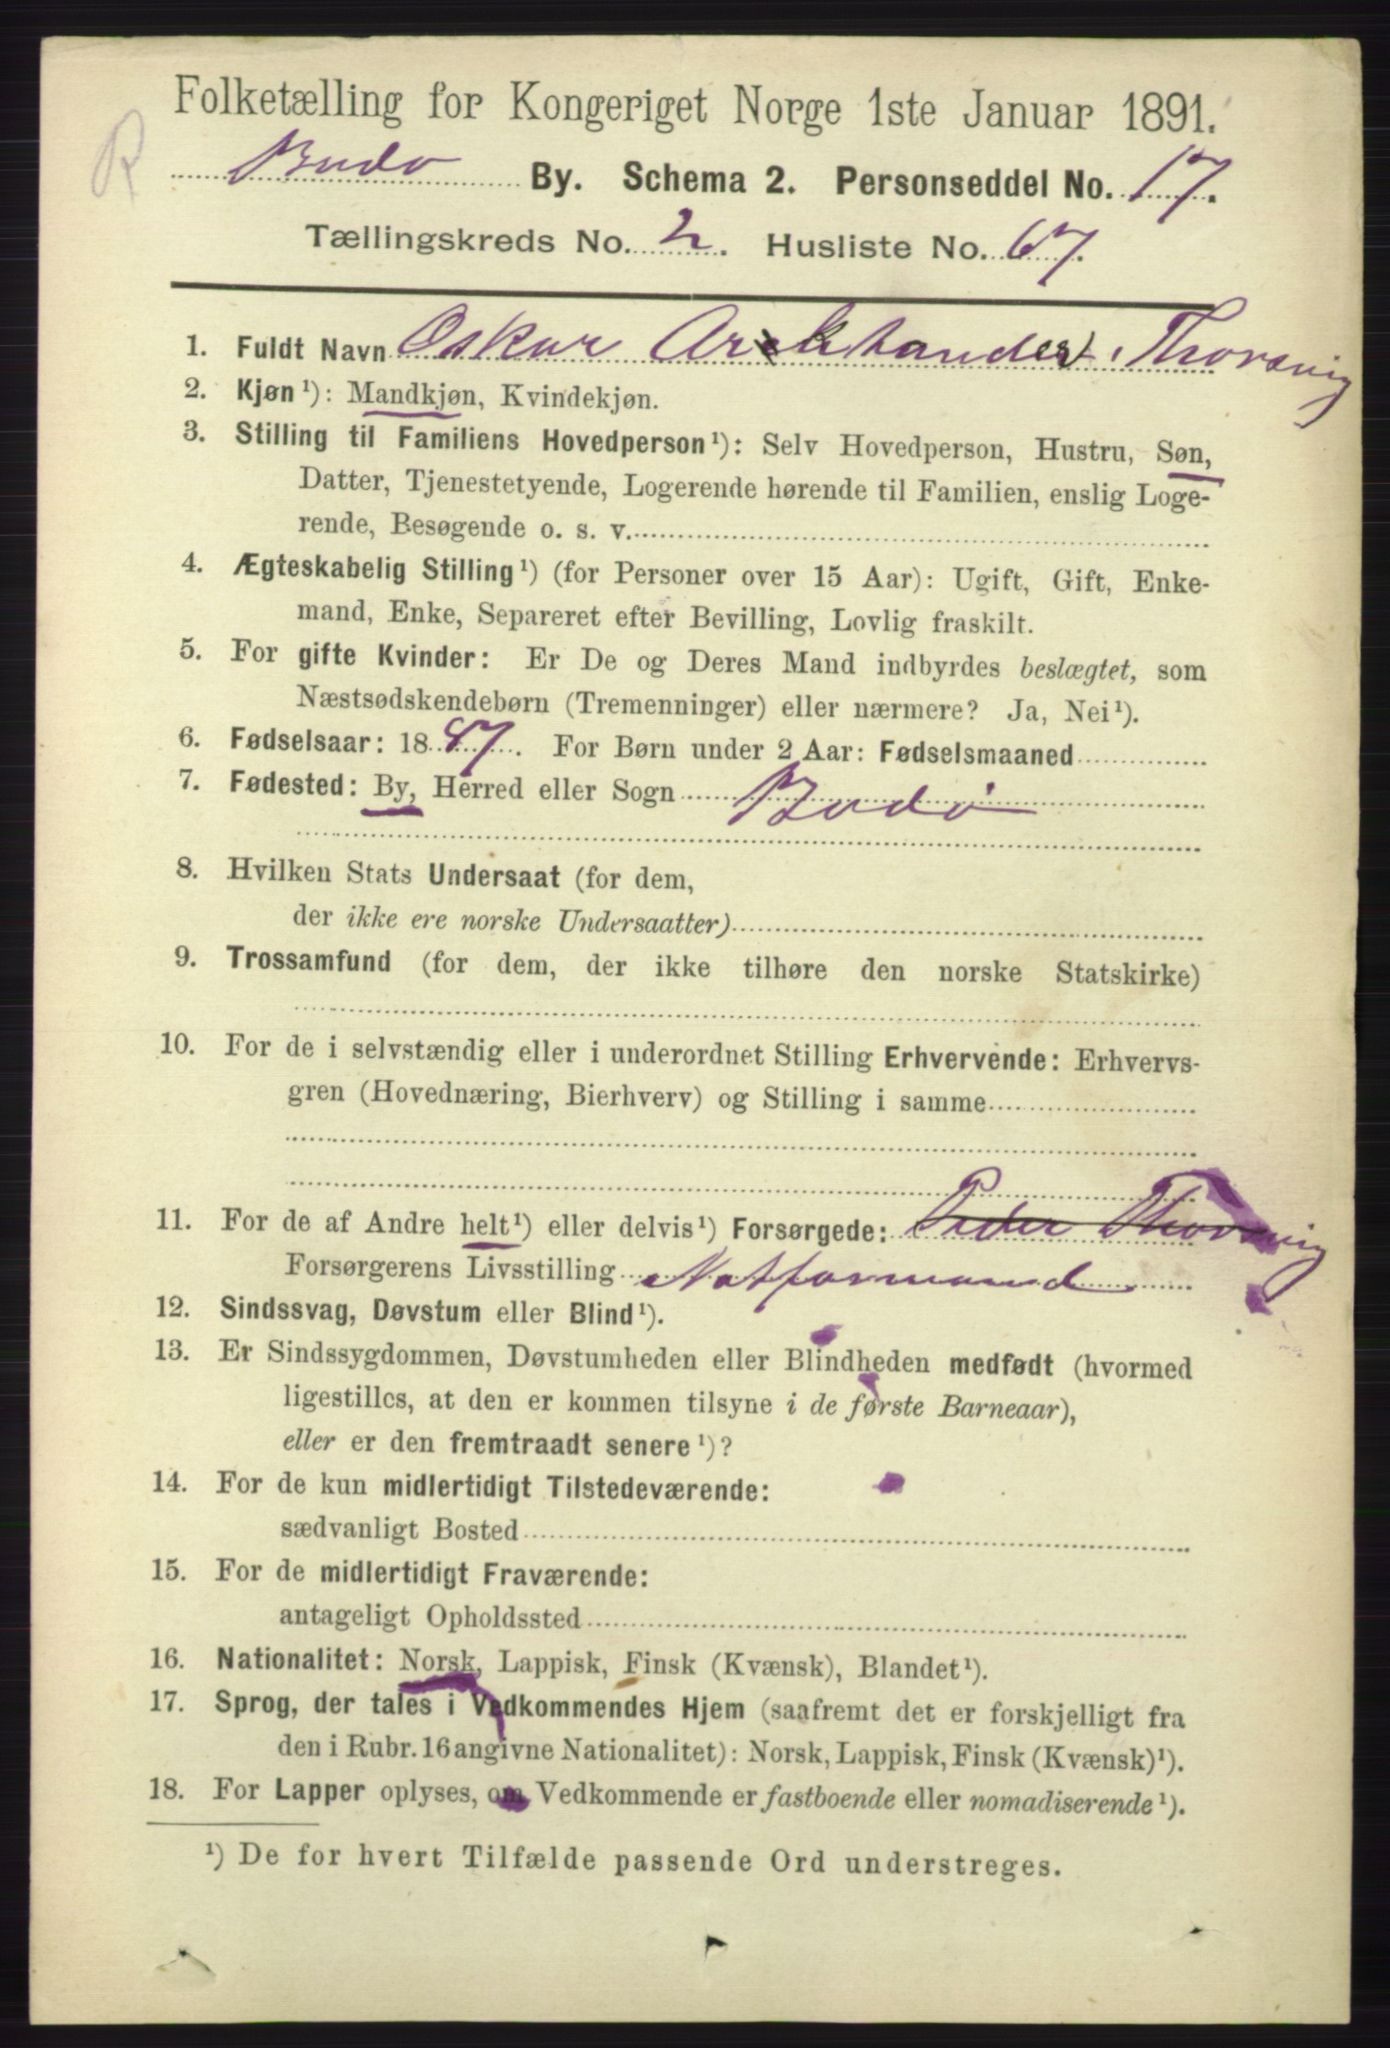 R
Folketælling for Kongeriget Norge 1ste Januar 1891.
Bodø By. Schema 2. Personseddel No. 17.
Tællingskreds No. 2. Husliste No. 67.
1. Fuldt Navn Oskar Thorsvig
2. Kjøn¹): Mandkjøn, Kvindekjøn.
3. Stilling til Familiens Hovedperson¹): Selv Hovedperson, Hustru, Søn,
Datter, Tjenestetyende, Logerende hørende til Familien, enslig Loge-
rende, Besøgende o. s. v.
4. Ægteskabelig Stilling¹) (for Personer over 15 Aar): Ugift, Gift, Enke-
mand, Enke, Separeret efter Bevilling, Lovlig fraskilt.
5. For gifte Kvinder: Er De og Deres Mand indbyrdes beslægtet, som
Næstsødskendebørn (Tremenninger) eller nærmere? Ja, Nei¹).
6. Fødselsaar: 1887. For Børn under 2 Aar: Fødselsmaaned
7. Fødested: By, Herred eller Sogn Bodø
8. Hvilken Stats Undersaat (for dem,
der ikke ere norske Undersaatter)
9. Trossamfund (for dem, der ikke tilhøre den norske Statskirke)
10. For de i selvstændig eller i underordnet Stilling Erhvervende: Erhvervs-
gren (Hovednæring, Bierhverv) og Stilling i samme
11. For de af Andre helt¹) eller delvis¹) Forsørgede: Peder Thorsvig
Forsørgerens Livsstilling Notformand
12. Sindssvag, Døvstum eller Blind¹).
13. Er Sindssygdommen, Døvstumheden eller Blindheden medfødt (hvormed
ligestilles, at den er kommen tilsyne i de første Barneaar),
eller er den fremtraadt senere¹)?
14. For de kun midlertidigt Tilstedeværende:
sædvanligt Bosted
15. For de midlertidigt Fraværende:
antageligt Opholdssted
16. Nationalitet: Norsk, Lappisk, Finsk (Kvænsk), Blandet¹).
17. Sprog, der tales i Vedkommendes Hjem (saafremt det er forskjelligt fra
den i Rubr. 16 angivne Nationalitet): Norsk, Lappisk, Finsk (Kvænsk)¹).
18. For Lapper oplyses, om Vedkommende er fastboende eller nomadiserende¹).
¹) De for hvert Tilfælde passende Ord understreges.